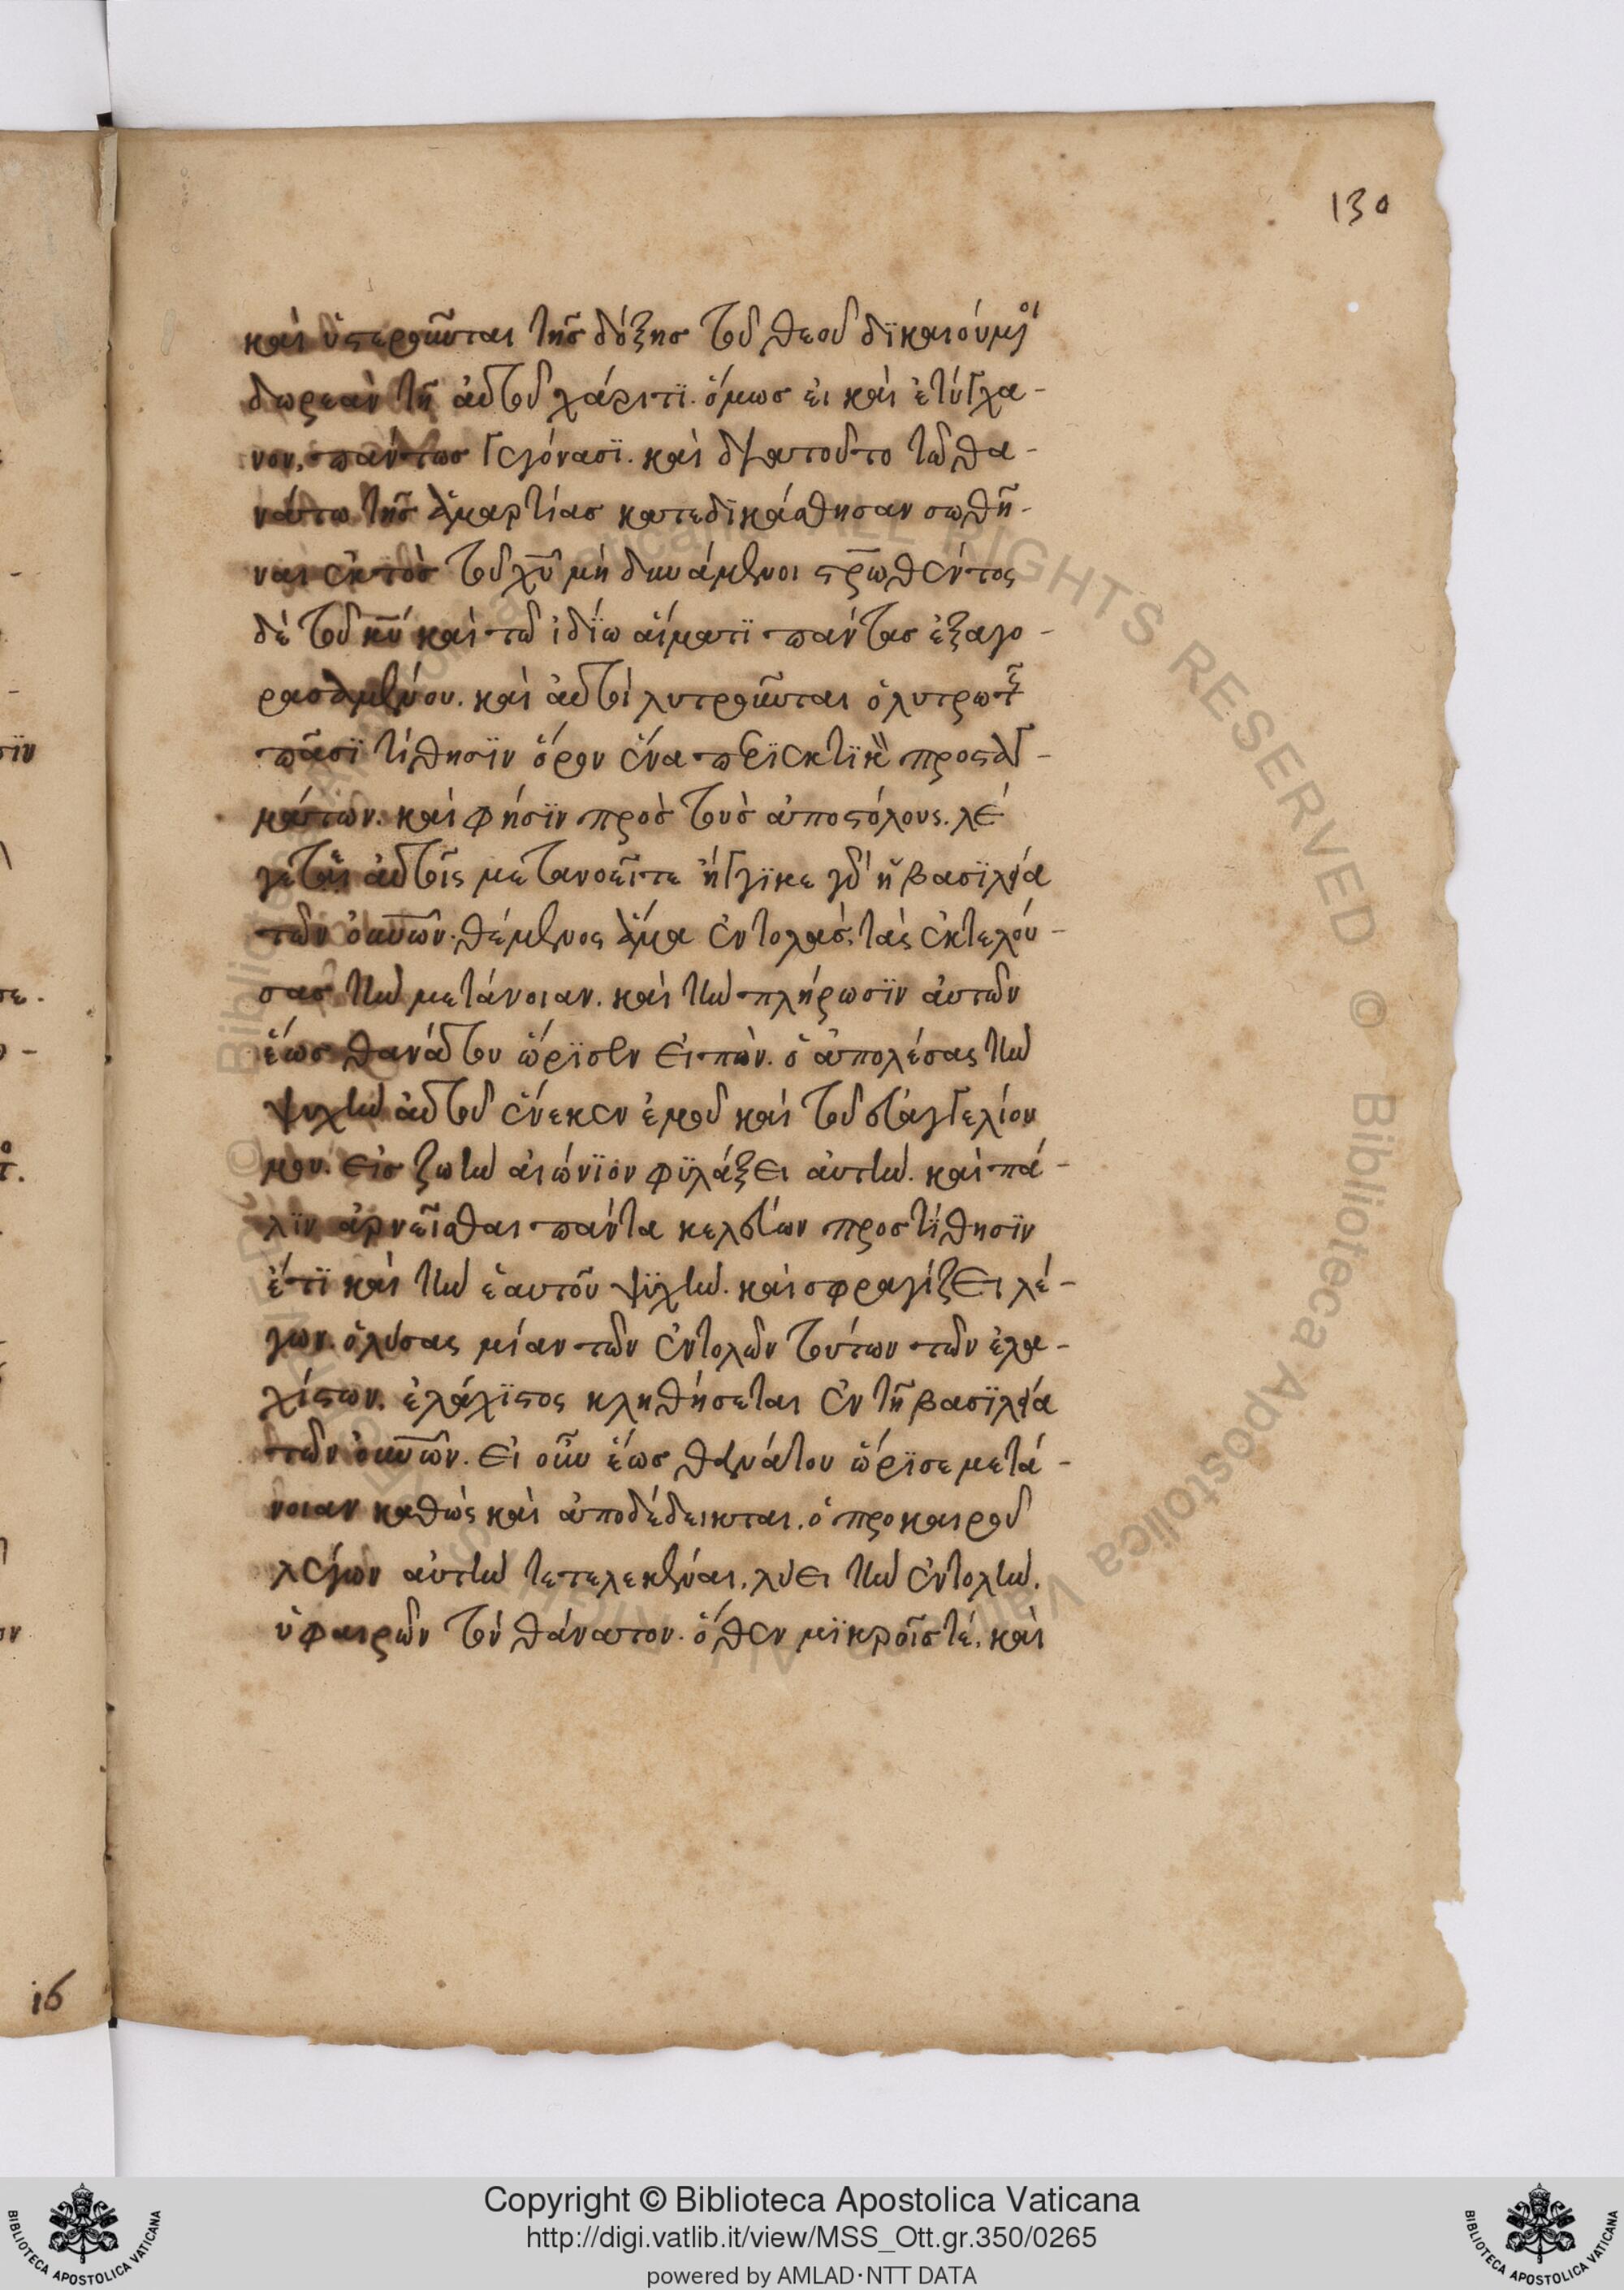 130
καὶ ὑστεροῦνται τῆς δόξης τοῦ θεοῦ δϊκαιούμενοι
δωρεὰν τῆ αὐτοῦ χάριτϊ. ὅμως εἰ καὶ ἐτύγχα-
νον, πάντως γεγόνασϊ. καὶ διατοῦτο τῶ θα-
νάτω τῆς ἁμαρτίας κατεδϊκάσθησαν σωθῆ-
ναι ἐκτὸς τοῦ χ̅υ̅ μὴ δυνάμενοι σ̅ρ̅ωθέντος
δὲ τοῦ κ̅υ̅ καὶ τῶ ἰδϊω αἵματϊ πάντας ἐξαγο-
ρασαμένου. καὶ αὐτοὶ λυτροῦνται ὁ λυτρωτὴς
πᾶσϊ τίθησϊν ὅρον ἕνα προσταγ-
μάτων. καὶ φησϊν πρὸς τοὺς ἀποστόλους. λέ
γεται αὐτοῖς μετανοεῖτε ἤγγϊκε γὰρ ἡ βασϊλεία
τῶν ο̅υ̅ν̅ῶν. θέμενος ἅμα ἐντολὰς. τὰς ἐκτελού-
σας τὴν μετάνοιαν. καὶ τὴν πλήρωσϊν αὐτῶν
ἕως θανάτου ὥρϊσεν εἰπὼν. ὁ ἀπολέσας τὴν
ψυχὴν αὐτοῦ ἕνεκεν ἐμοῦ καὶ τοῦ εὐαγγελίου
μου. εἰς ζωὴν αἰώνϊον φϋλάξει αὐτὴν. καὶ πά-
λϊν ἀρνεῖσθαι πάντα κελεύων προστίθησϊν
ἔτϊ καὶ τὴν ἑαυτοῦ ψϋχὴν. καὶ σφραγίζει λέ-
γων. ὁ λύσας μίαν τῶν ἐντολῶν τούτων τῶν ἐλα-
χίστων. ἐλάχϊστος κληθήσεται ἐν τῆ βασϊλεία
τῶν ο̅υ̅ν̅ῶν. εἰ οὖν ἕως θανάτου ὥρϊσε μετά-
νοιαν καθὼς καὶ ἀποδέδεικται. ὁ προ καιροῦ
λέγων αὐτὴν τετελεκέναι. λύει τὴν ἐντολὴν.
ὑφαιρῶν τὸν θάνατον. ὅθεν μϊκροῖς τέ. καὶ
16
Copyright © Biblioteca Apostolica Vaticana
http://digi.vatlib.it/view/MSS_Ott.gr.350/0265
powered by AMLAD·NTT DATA
BIBLIOTECA APOSTOLICA VATICANA
BIBLIOTECA APOSTOLICA VATICANA